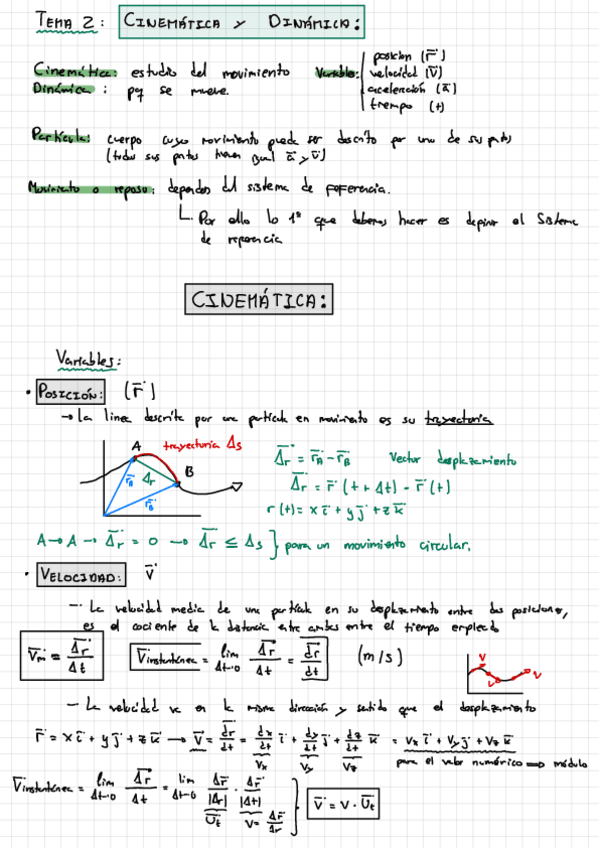 TEMA 2: CINEMÁTICA Y DINÁMICA:
Cinemática: estudio del movimiento Variables: posicion (r̄)
velocidad (v̄)
aceleración (ā)
tiempo (t)
Dinámica: pq se mueve.
Partícula: cuerpo cuyo movimiento puede ser descrito por uno de sus ptos
(todos sus ptos tienen igual ā y v̄)
Movimiento o reposo: depender del sistema de referencia.
Por ello lo 1º que debemos hacer es definir el Sistema
de referencia
CINEMÁTICA:
Variables:
• POSICIÓN: (r̄)
→ La linea descrita por una partícula en movimiento es su trayectoria
A trayectoria Δs
B
r̄A Δr r̄B
Δr = r̄A - r̄B Vector desplazamiento
Δr = r̄(t+Δt) - r̄(t)
r(t) = x ī + y j̄ + z k̄
A→A → Δr = 0 → Δr ≤ Δs } para un movimiento circular.
• VELOCIDAD: v̄
- La velocidad media de una partícula en su desplazamiento entre dos posiciones,
es el cociente de la distancia entre ambas entre el tiempo empleado
v̄m = Δr/Δt v̄instantánea = lim Δt→0 Δr/Δt = dr/dt (m/s)
v v v
- La velocidad va en la misma dirección y sentido que el desplazamiento
r̄ = x ī + y j̄ + z k̄ → v̄ = dr/dt = dx/dt ī + dy/dt j̄ + dz/dt k̄ = vx ī + vy j̄ + vz k̄
vx vy vz para el valor numérico ⇒ módulo
v̄instantánea = lim Δt→0 Δr/Δt = lim Δt→0 Δr/|Δr| · Δr/|Δt| } v̄ = v · ūt
ūt v = Δr/Δr